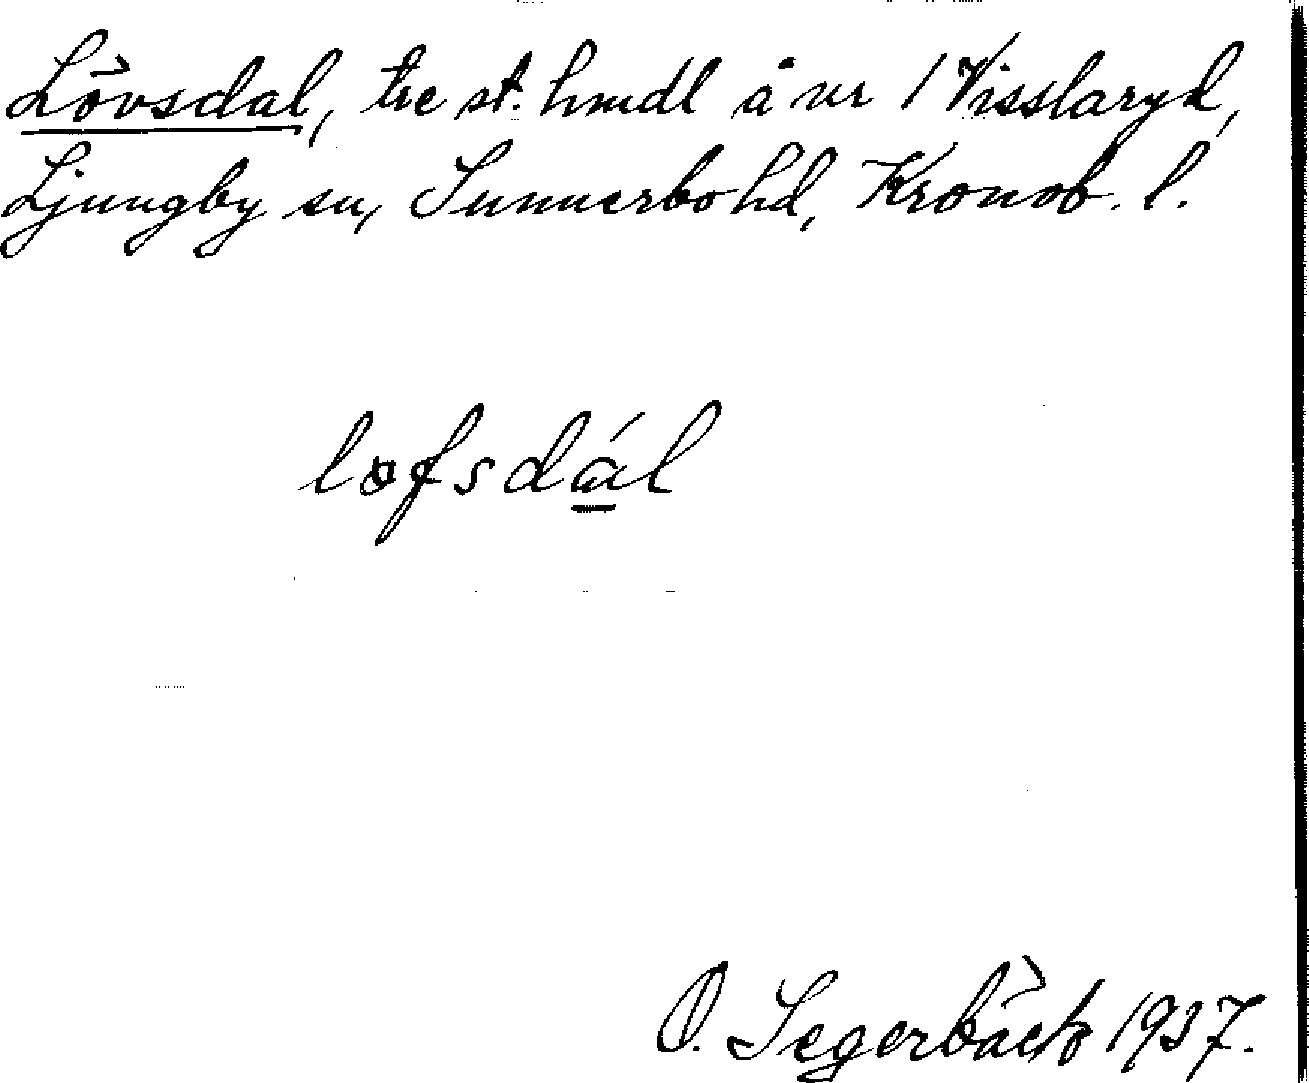 Lövsdal, tre st. hmdl å nr 1 Visslaryd,
Ljungby sn, Sunnerbo hd, Kronob. l.
løfsdál
O. Segerbäck 1937.